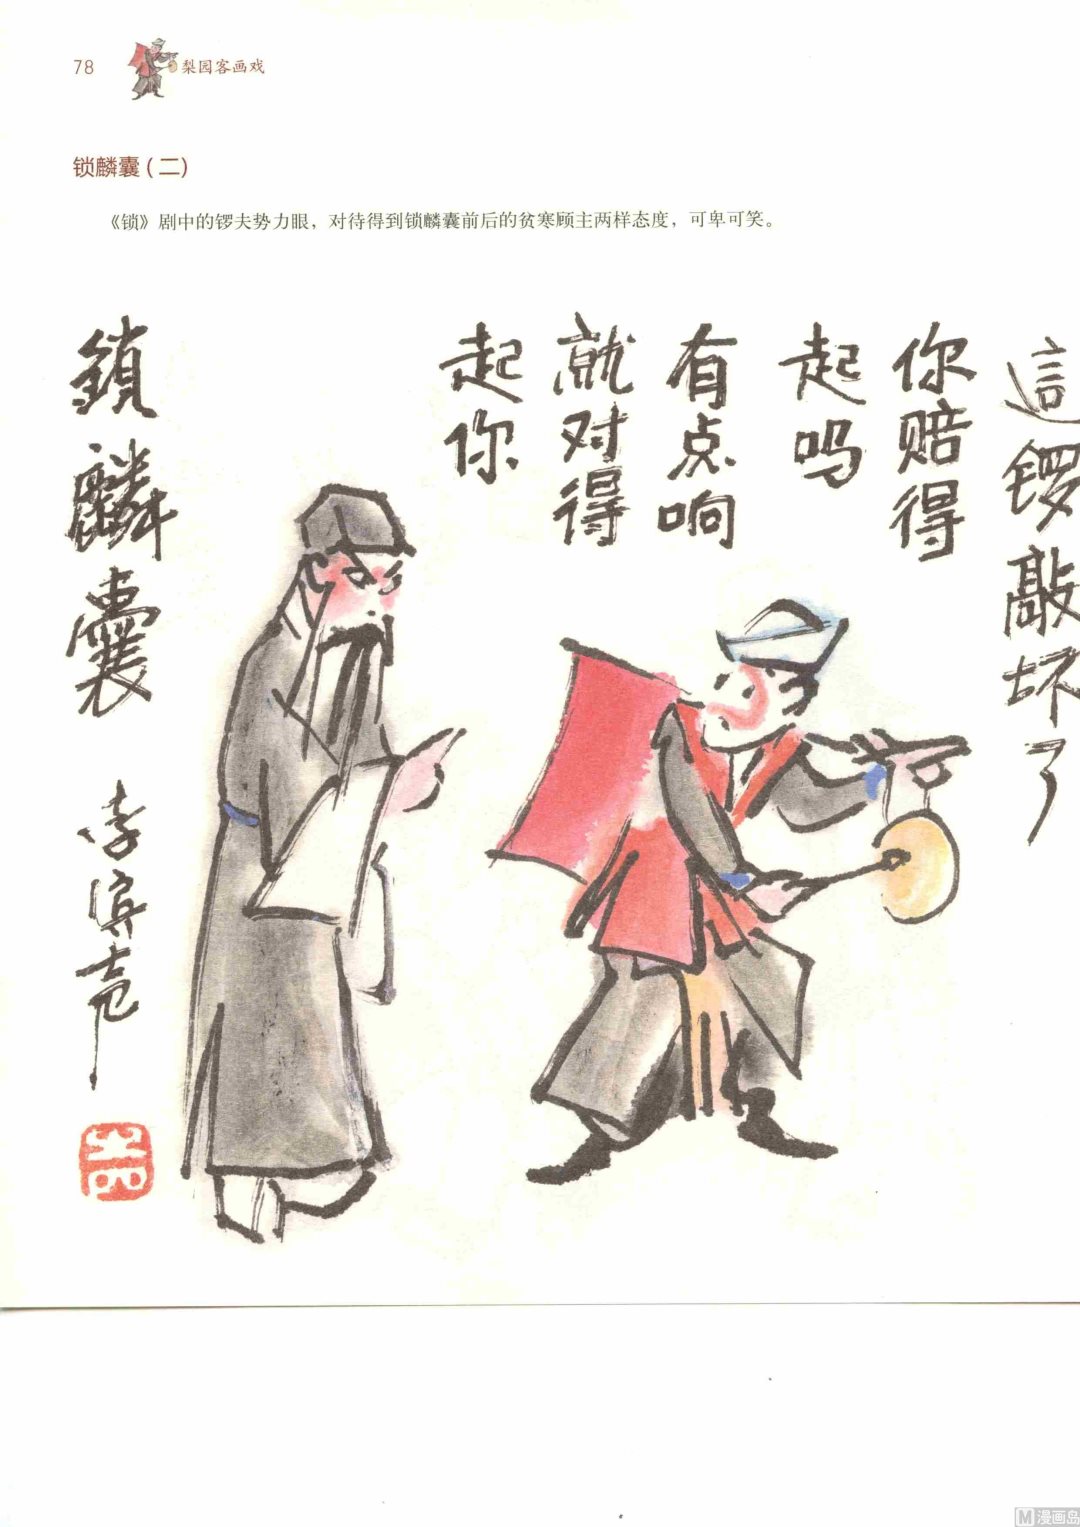 78
梨园客画戏
锁麟囊(二)
《锁》剧中的锣夫势力眼，对待得到锁麟囊前后的贫寒顾主两样态度，可卑可笑。
這锣敲坏了
你赔得
起吗
有点响
就对得
起你
鎖麟囊
李滨声
漫画岛